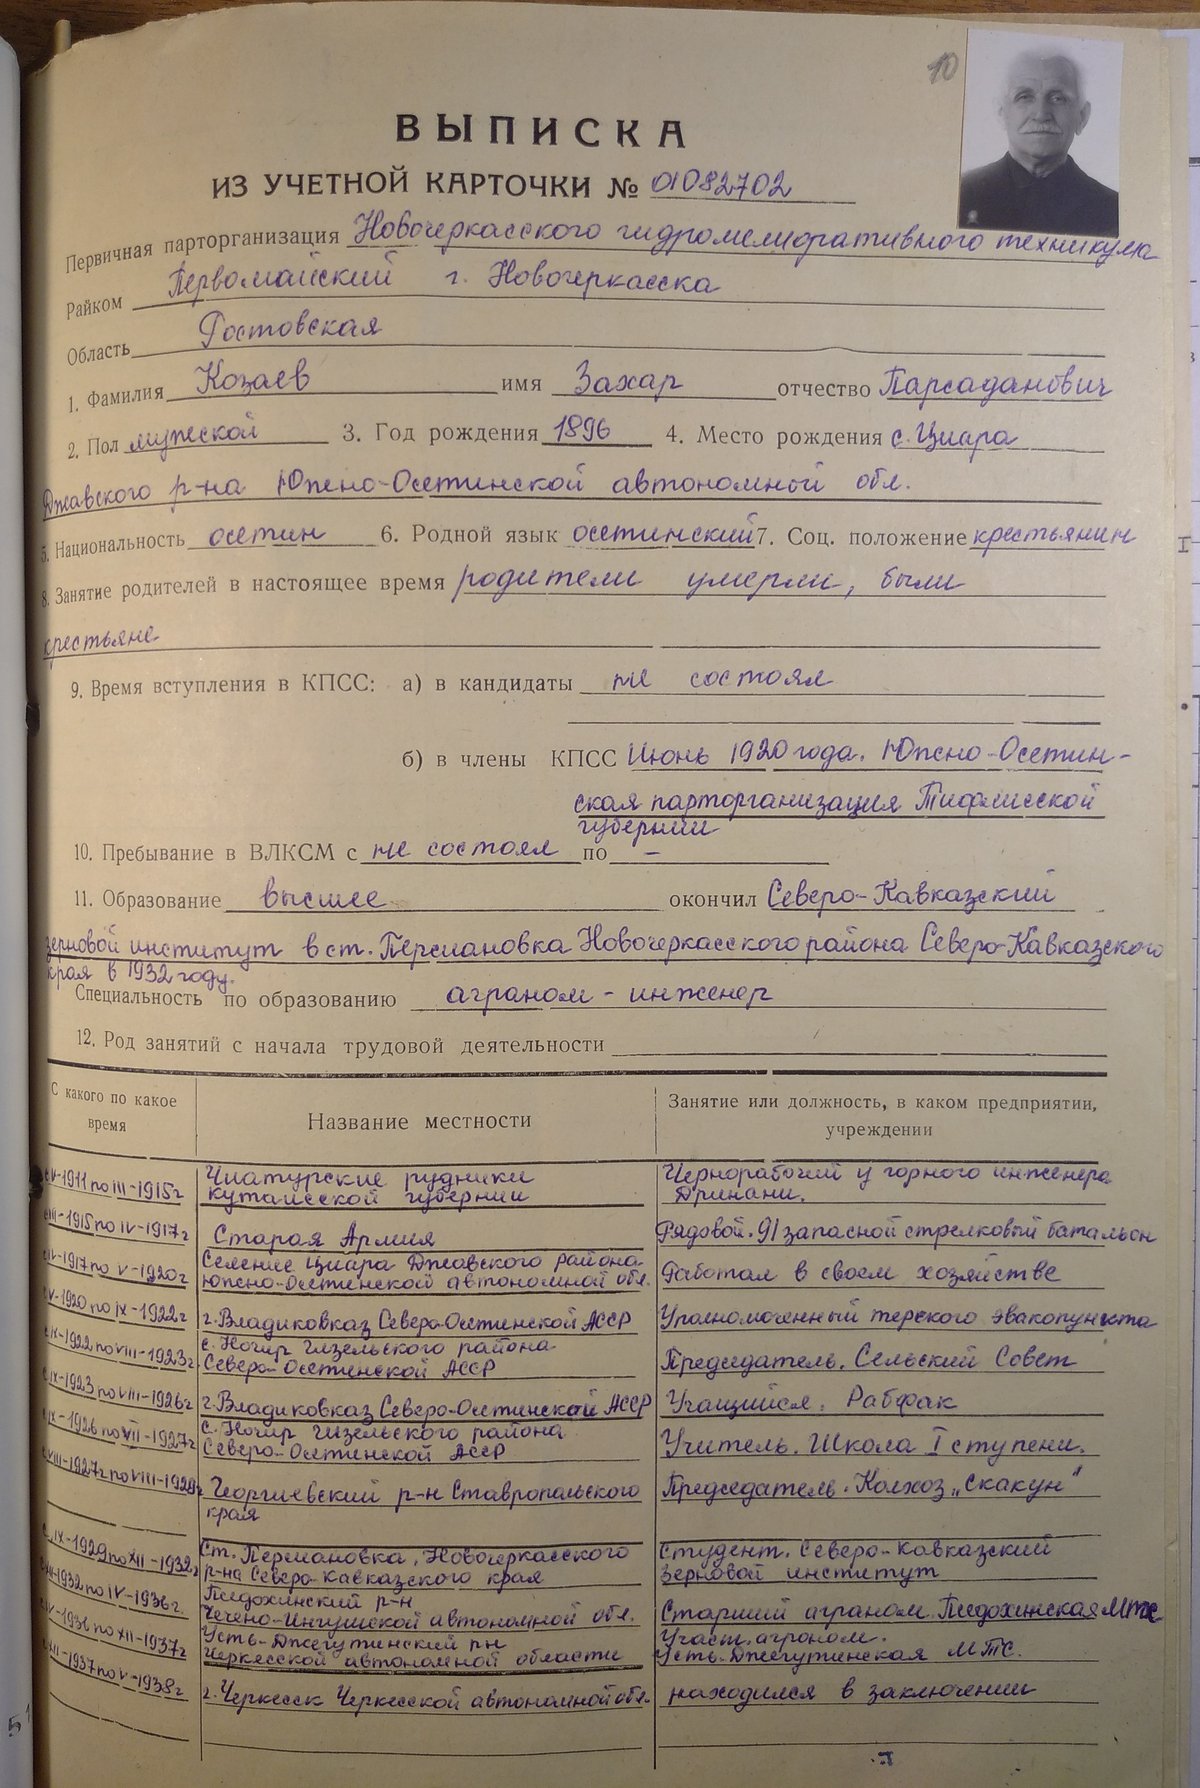 10
ВЫПИСКА
ИЗ УЧЕТНОЙ КАРТОЧКИ № 01082702
Первичная парторганизация Новочеркасского гидромелиоративного техникума
Райком Первомайский г. Новочеркасска
Область Ростовская
1. Фамилия Козаев имя Захар отчество Парсаданович
2. Пол мужской 3. Год рождения 1896 4. Место рождения с. Циара
Джавского р-на Южно-Осетинской автономной обл.
5. Национальность осетин 6. Родной язык осетинский 7. Соц. положение крестьянин
8. Занятие родителей в настоящее время родители умерли, были
крестьяне
9. Время вступления в КПСС: а) в кандидаты не состоял
б) в члены КПСС Июнь 1920 года. Южно-Осетин-
ская парторганизация Тифлисской
губернии
10. Пребывание в ВЛКСМ с не состоял по —
11. Образование высшее окончил Северо-Кавказский
зерновой институт в ст. Персиановка Новочеркасского района Северо-Кавказского
края в 1932 году.
Специальность по образованию аграном - инженер
12. Род занятий с начала трудовой деятельности
С какого по какое время Название местности Занятие или должность, в каком предприятии, учреждении
с V-1911 по III-1915г Чиатурские рудники Чернорабочий у горного инженера
Кутаисской губернии
с III-1915 по IV-1917г Старая Армия Рядовой. 91 запасной стрелковый батальон
с IV-1917 по V-1920г Селение Циара Джавского района Работал в своем хозяйстве
Юно-Осетинской автономной обл.
с V-1920 по IX-1922г г. Владикавказ Северо-Осетинской АССР Уполномоченный терского эвакопункта
с IX-1922 по VIII-1923г с. Ногир Гизельского района Председатель. Сельский Совет
Северо-Осетинской АССР
с IX-1923 по VIII-1926г г. Владикавказ Северо-Осетинской АССР Учащийся. Рабфак
с IX-1926 по VII-1927г с. Ногир Гизельского района Учитель. Школа I ступени.
Северо-Осетинской АССР
с VIII-1927г по VIII-1929г Георгиевский р-н Ставропольского Председатель. Колхоз „Скакун"
края
с IX-1929 по XII-1932г Ст. Персиановка, Новочеркасского Студент. Северо-Кавказский
р-на Северо-Кавказского края зерновой институт
1932 по IV-1936г. р-н
Чечено-Ингушской автономной обл. Старший аграном. МТС
с IV-1936 по XII-1937г Усть-Джегутинский рн Участ. агроном.
Черкесской автономной области Усть-Джегутинская МТС.
с XII-1937 по V-1938г г. Черкесск Черкесской автономной обл. находился в заключении